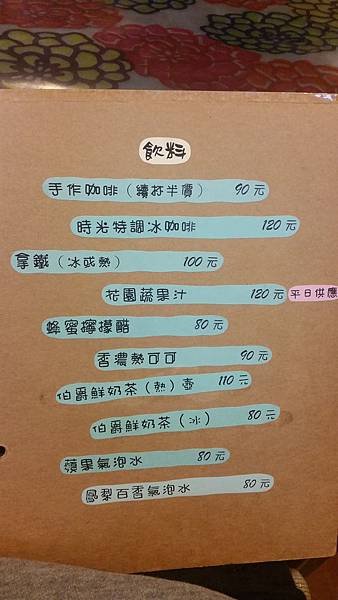 飲料
手作咖啡（續杯半價） 90 元
時光特調冰咖啡 120 元
拿鐵（冰或熱） 100 元
花園蔬果汁 120 元 平日供應
蜂蜜檸檬醋 80 元
香濃熱可可 90 元
伯爵鮮奶茶（熱）壺 110 元
伯爵鮮奶茶（冰） 80 元
蘋果氣泡水 80 元
鳳梨百香氣泡水 80 元